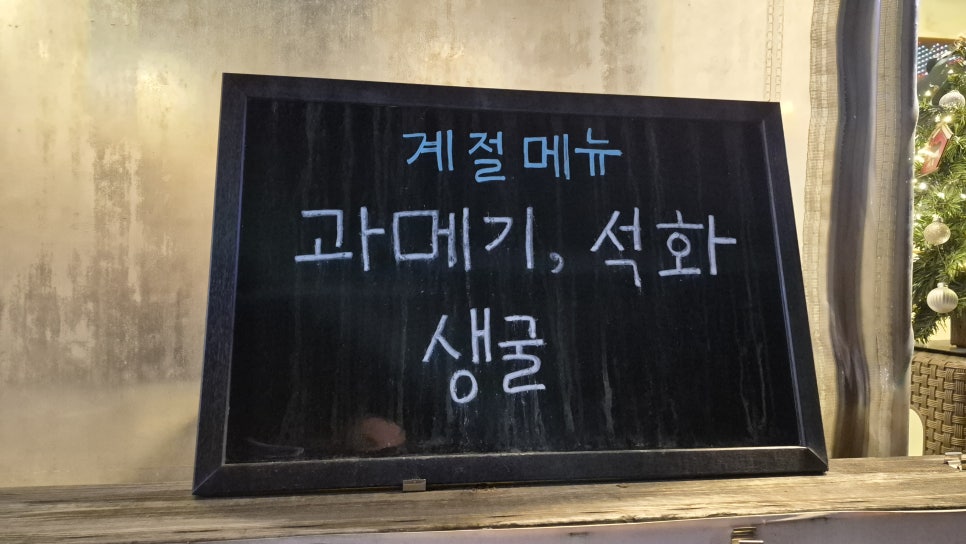 계절메뉴
과메기, 석화
생굴